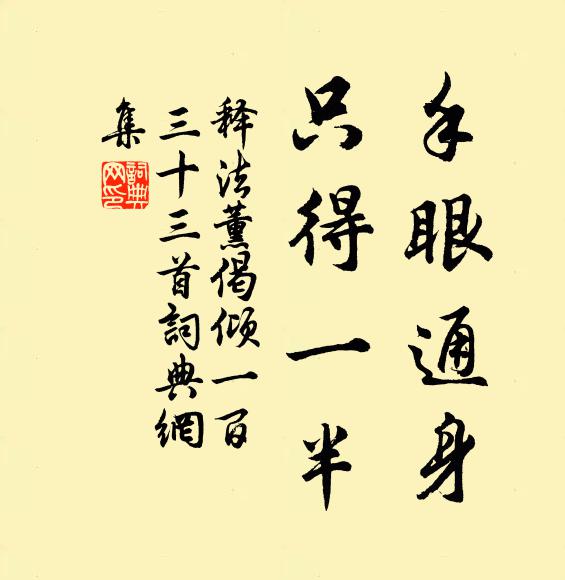 手眼通身
只得一半
释法薰偈倾一百
三十三首詞典網
集
詞典網印